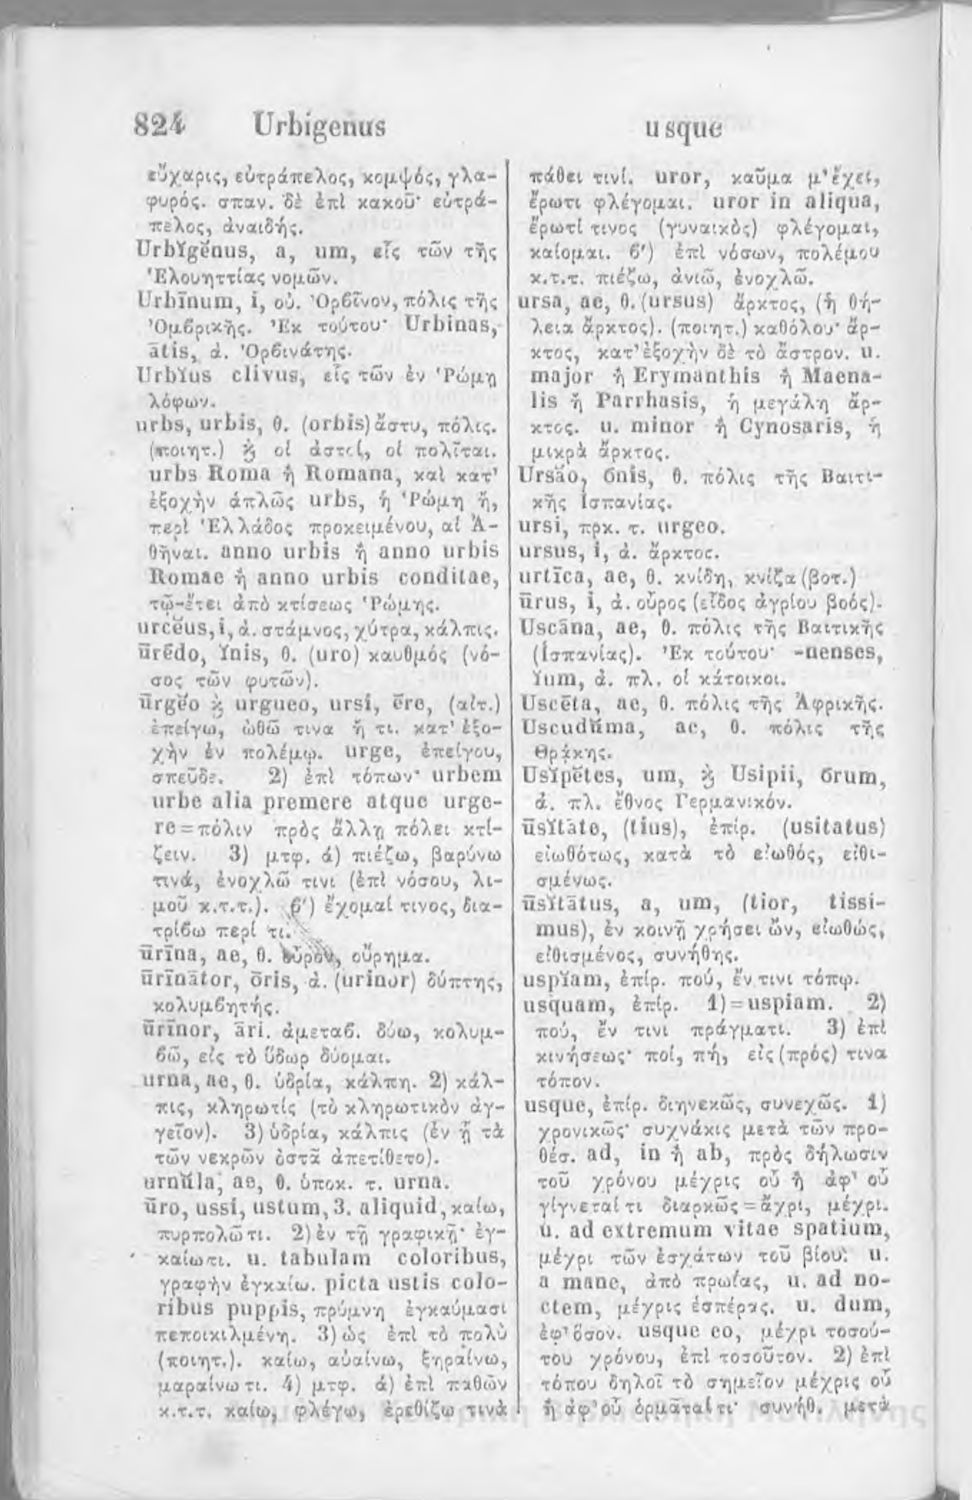 824 Urbigenus usque
εὔχαρις, εὐτράπελος, κομψός, γλα-
φυρός. σπαν. δὲ ἐπὶ κακοῦ· εὐτρά-
πελος, ἀναιδής.
Urbĭgĕnus, a, um, εἷς τῶν τῆς
Ἑλουηττίας νομῶν.
Urbīnum, i, οὐ. Ὀρβῖνον, πόλις τῆς
Ὀμβρικῆς. Ἐκ τούτου· Urbinas,
ātis, ἀ. Ὀρβινάτης.
Urbĭus clivus, εἷς τῶν ἐν Ῥώμῃ
λόφων.
urbs, urbis, θ. (orbis) ἄστυ, πόλις.
(ποιητ.) ϗ οἱ ἀστοί, οἱ πολῖται.
urbs Roma ἢ Romana, καὶ κατ'
ἐξοχὴν ἁπλῶς urbs, ἡ Ῥώμη ἤ,
περὶ Ἑλλάδος προκειμένου, αἱ Ἀ-
θῆναι. anno urbis ἢ anno urbis
Romae ἢ anno urbis conditae,
τῷ-ἔτει ἀπὸ κτίσεως Ῥώμης.
urcĕus, i, ἀ. στάμνος, χύτρα, κάλπις.
ūrēdo, ĭnis, θ. (uro) καυθμός (νό-
σος τῶν φυτῶν).
ūrgĕo ϗ urgueo, ursi, ēre, (αἰτ.)
ἐπείγω, ὠθῶ τινα ἤ τι. κατ' ἐξο-
χὴν ἐν πολέμῳ. urge, ἐπείγου,
σπεῦδε. 2) ἐπὶ τόπων· urbem
urbe alia premere atque urge-
re=πόλιν πρὸς ἄλλῃ πόλει κτί-
ζειν. 3) μτφ. ά) πιέζω, βαρύνω
τινά, ἐνοχλῶ τινι (ἐπὶ νόσου, λι-
μοῦ κ.τ.τ.). ϐ') ἔχομαί τινος, δια-
τρίβω περί τι.
ūrīna, ae, θ. οὖρον, οὔρημα.
ūrīnātor, ōris, ἀ. (urinor) δύπτης,
κολυμβητής.
ūrīnor, āri. ἀμεταβ. δύω, κολυμ-
βῶ, εἰς τὸ ὕδωρ δύομαι.
urna, ae, θ. ὑδρία, κάλπη. 2) κάλ-
πις, κληρωτίς (τὸ κληρωτικὸν ἀγ-
γεῖον). 3) ὑδρία, κάλπις (ἐν ᾗ τὰ
τῶν νεκρῶν ὀστᾶ ἀπετίθετο).
urnŭla, ae, θ. ὑποκ. τ. urna.
ūro, ussi, ustum, 3. aliquid, καίω,
πυρπολῶ τι. 2) ἐν τῇ γραφικῇ· ἐγ-
καίω τι. u. tabulam coloribus,
γραφὴν ἐγκαίω. picta ustis colo-
ribus puppis, πρύμνη ἐγκαύμασι
πεποικιλμένη. 3) ὡς ἐπὶ τὸ πολὺ
(ποιητ.). καίω, αὐαίνω, ξηραίνω,
μαραίνω τι. 4) μτφ. ά) ἐπὶ παθῶν
κ.τ.τ. καίω, φλέγω, ἐρεθίζω τινὰ
πάθει τινί. uror, καῦμα μ' ἔχει,
ἔρωτι φλέγομαι. uror in aliqua,
ἔρωτί τινος (γυναικὸς) φλέγομαι,
καίομαι. ϐ') ἐπὶ νόσων, πολέμου
κ.τ.τ. πιέζω, ἀνιῶ, ἐνοχλῶ.
ursa, ae, θ. (ursus) ἄρκτος, (ἡ θή-
λεια ἄρκτος). (ποιητ.) καθόλου· ἄρ-
κτος, κατ' ἐξοχὴν δὲ τὸ ἄστρον. u.
major ἢ Erymanthis ἢ Maena-
lis ἢ Parrhasis, ἡ μεγάλη ἄρ-
κτος. u. minor ἢ Cynosaris, ἡ
μικρὰ ἄρκτος.
Ursāo, ōnis, θ. πόλις τῆς Βαιτι-
κῆς Ἱσπανίας.
ursi, πρκ. τ. urgeo.
ursus, i, ἀ. ἄρκτος.
urtīca, ae, θ. κνίδη, κνίζα (βοτ.)
ūrus, i, ἀ. οὖρος (εἶδος ἀγρίου βοός).
Uscāna, ae, θ. πόλις τῆς Βαιτικῆς
(Ἱσπανίας). Ἐκ τούτου· -nenses,
ĭum, ἀ. πλ. οἱ κάτοικοι.
Uscēta, ae, θ. πόλις τῆς Ἀφρικῆς.
Uscudŭma, ae, θ. πόλις τῆς
Θρᾴκης.
Usĭpĕtes, um, ϗ Usipii, ōrum,
ἀ. πλ. ἔθνος Γερμανικόν.
ūsĭtāte, (tius), ἐπίρ. (usitatus)
εἰωθότως, κατὰ τὸ εἰωθός, εἰθι-
σμένως.
ūsĭtātus, a, um, (tior, tissi-
mus), ἐν κοινῇ χρήσει ὤν, εἰωθώς,
εἰθισμένος, συνήθης.
uspĭam, ἐπίρ. πού, ἔν τινι τόπῳ.
usquam, ἐπίρ. 1)=uspiam. 2)
πού, ἔν τινι πράγματι. 3) ἐπὶ
κινήσεως· ποί, πή, εἰς (πρός) τινα
τόπον.
usque, ἐπίρ. διηνεκῶς, συνεχῶς. 1)
χρονικῶς· συχνάκις μετὰ τῶν προ-
θέσ. ad, in ἢ ab, πρὸς δήλωσιν
τοῦ χρόνου μέχρις οὗ ἢ ἀφ' οὗ
γίγνεταί τι διαρκῶς=ἄχρι, μέχρι.
u. ad extremum vitae spatium,
μέχρι τῶν ἐσχάτων τοῦ βίου. u.
a mane, ἀπὸ πρωίας, u. ad no-
ctem, μέχρις ἑσπέρας. u. dum,
ἐφ' ὅσον. usque eo, μέχρι τοσού-
του χρόνου, ἐπὶ τοσοῦτον. 2) ἐπὶ
τόπου δηλοῖ τὸ σημεῖον μέχρις οὗ
ἢ ἀφ' οὗ ὁρμᾶταί τι· συνήθ. μετὰ